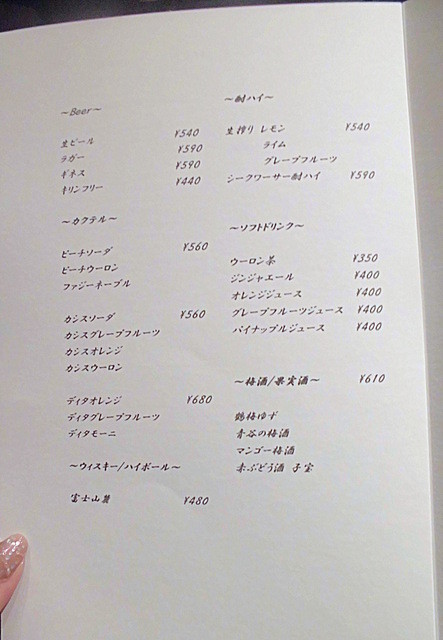 ～Beer～
生ビール ¥540
ラガー ¥590
ギネス ¥590
キリンフリー ¥440
～カクテル～
ピーチソーダ ¥560
ピーチウーロン
ファジーネーブル
カシスソーダ ¥560
カシスグレープフルーツ
カシスオレンジ
カシスウーロン
ディタオレンジ ¥680
ディタグレープフルーツ
ディタモーニ
～ウィスキー/ハイボール～
富士山麓 ¥480
～酎ハイ～
生搾り レモン ¥540
ライム
グレープフルーツ
シークワーサー酎ハイ ¥590
～ソフトドリンク～
ウーロン茶 ¥350
ジンジャエール ¥400
オレンジジュース ¥400
グレープフルーツジュース ¥400
パイナップルジュース ¥400
～梅酒/果実酒～ ¥610
鶴梅ゆず
青谷の梅酒
マンゴー梅酒
赤ぶどう酒 子宝